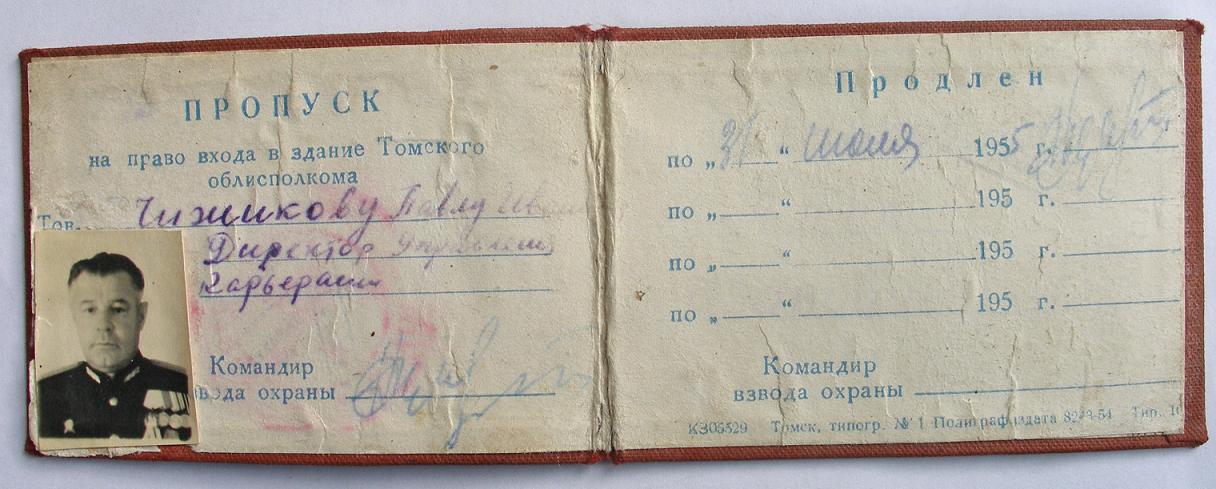 ПРОПУСК
на право входа в здание Томского
облисполкома
Тов. Чижикову Павлу
Директор
карьерами
Командир
взвода охраны
Продлен
по „31“ июля 1955 г.
по „ “ 195 г.
по „ “ 195 г.
по „ “ 195 г.
Командир
взвода охраны
КЗ05529 Томск, типогр. № 1 Полиграфиздата 8243-54 Тир.